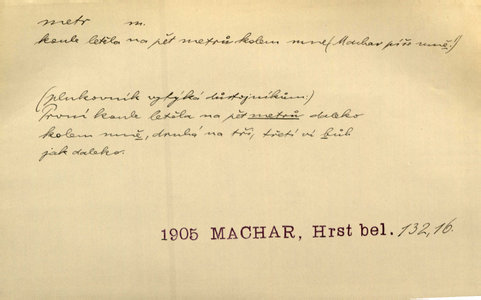 metr m.
koule letěla na pět metrů kolem mne (Machar píše mně!)
(plukovník vytýká důstojníkům:)
První koule letěla na pět metrů daleko
kolem mně, druhá na tři, třetí ví bůh
jak daleko.
1905 MACHAR, Hrst bel. 132,16.